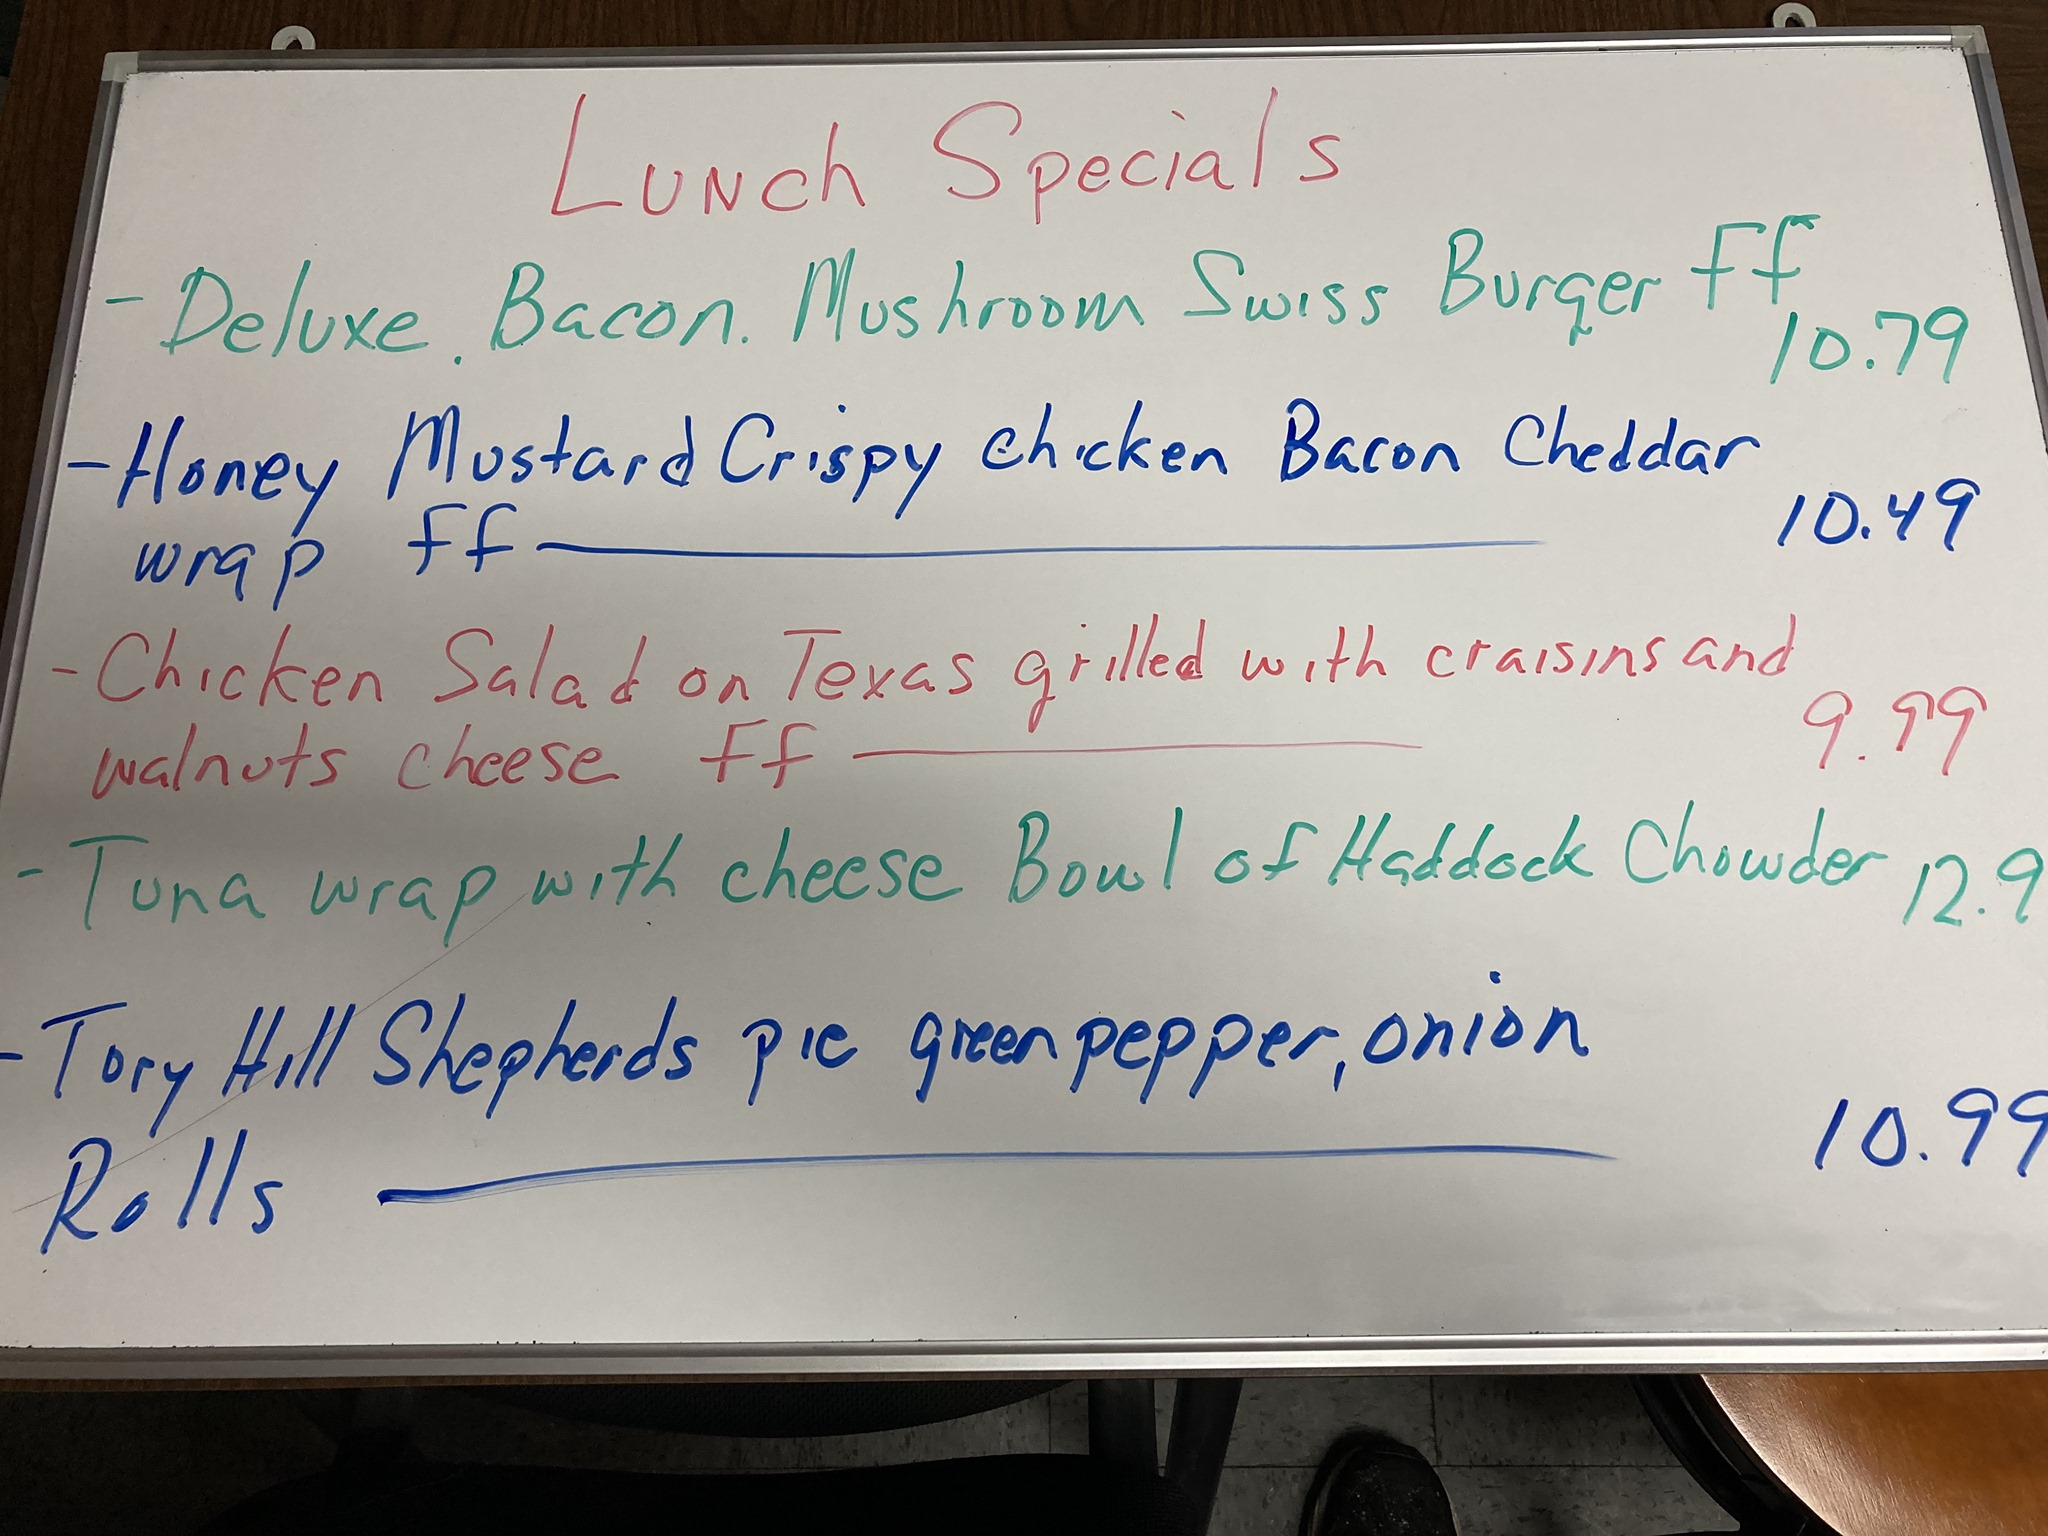 Lunch Specials
- Deluxe. Bacon. Mushroom Swiss Burger ff
10.79
- Honey Mustard Crispy chicken Bacon Cheddar
wrap ff — 10.49
- Chicken Salad on Texas grilled with craisins and
walnuts cheese ff — 9.99
- Tuna wrap with cheese Bowl of Haddock Chowder 12.9
- Tory Hill Shepherds pie green pepper, onion
Rolls — 10.99